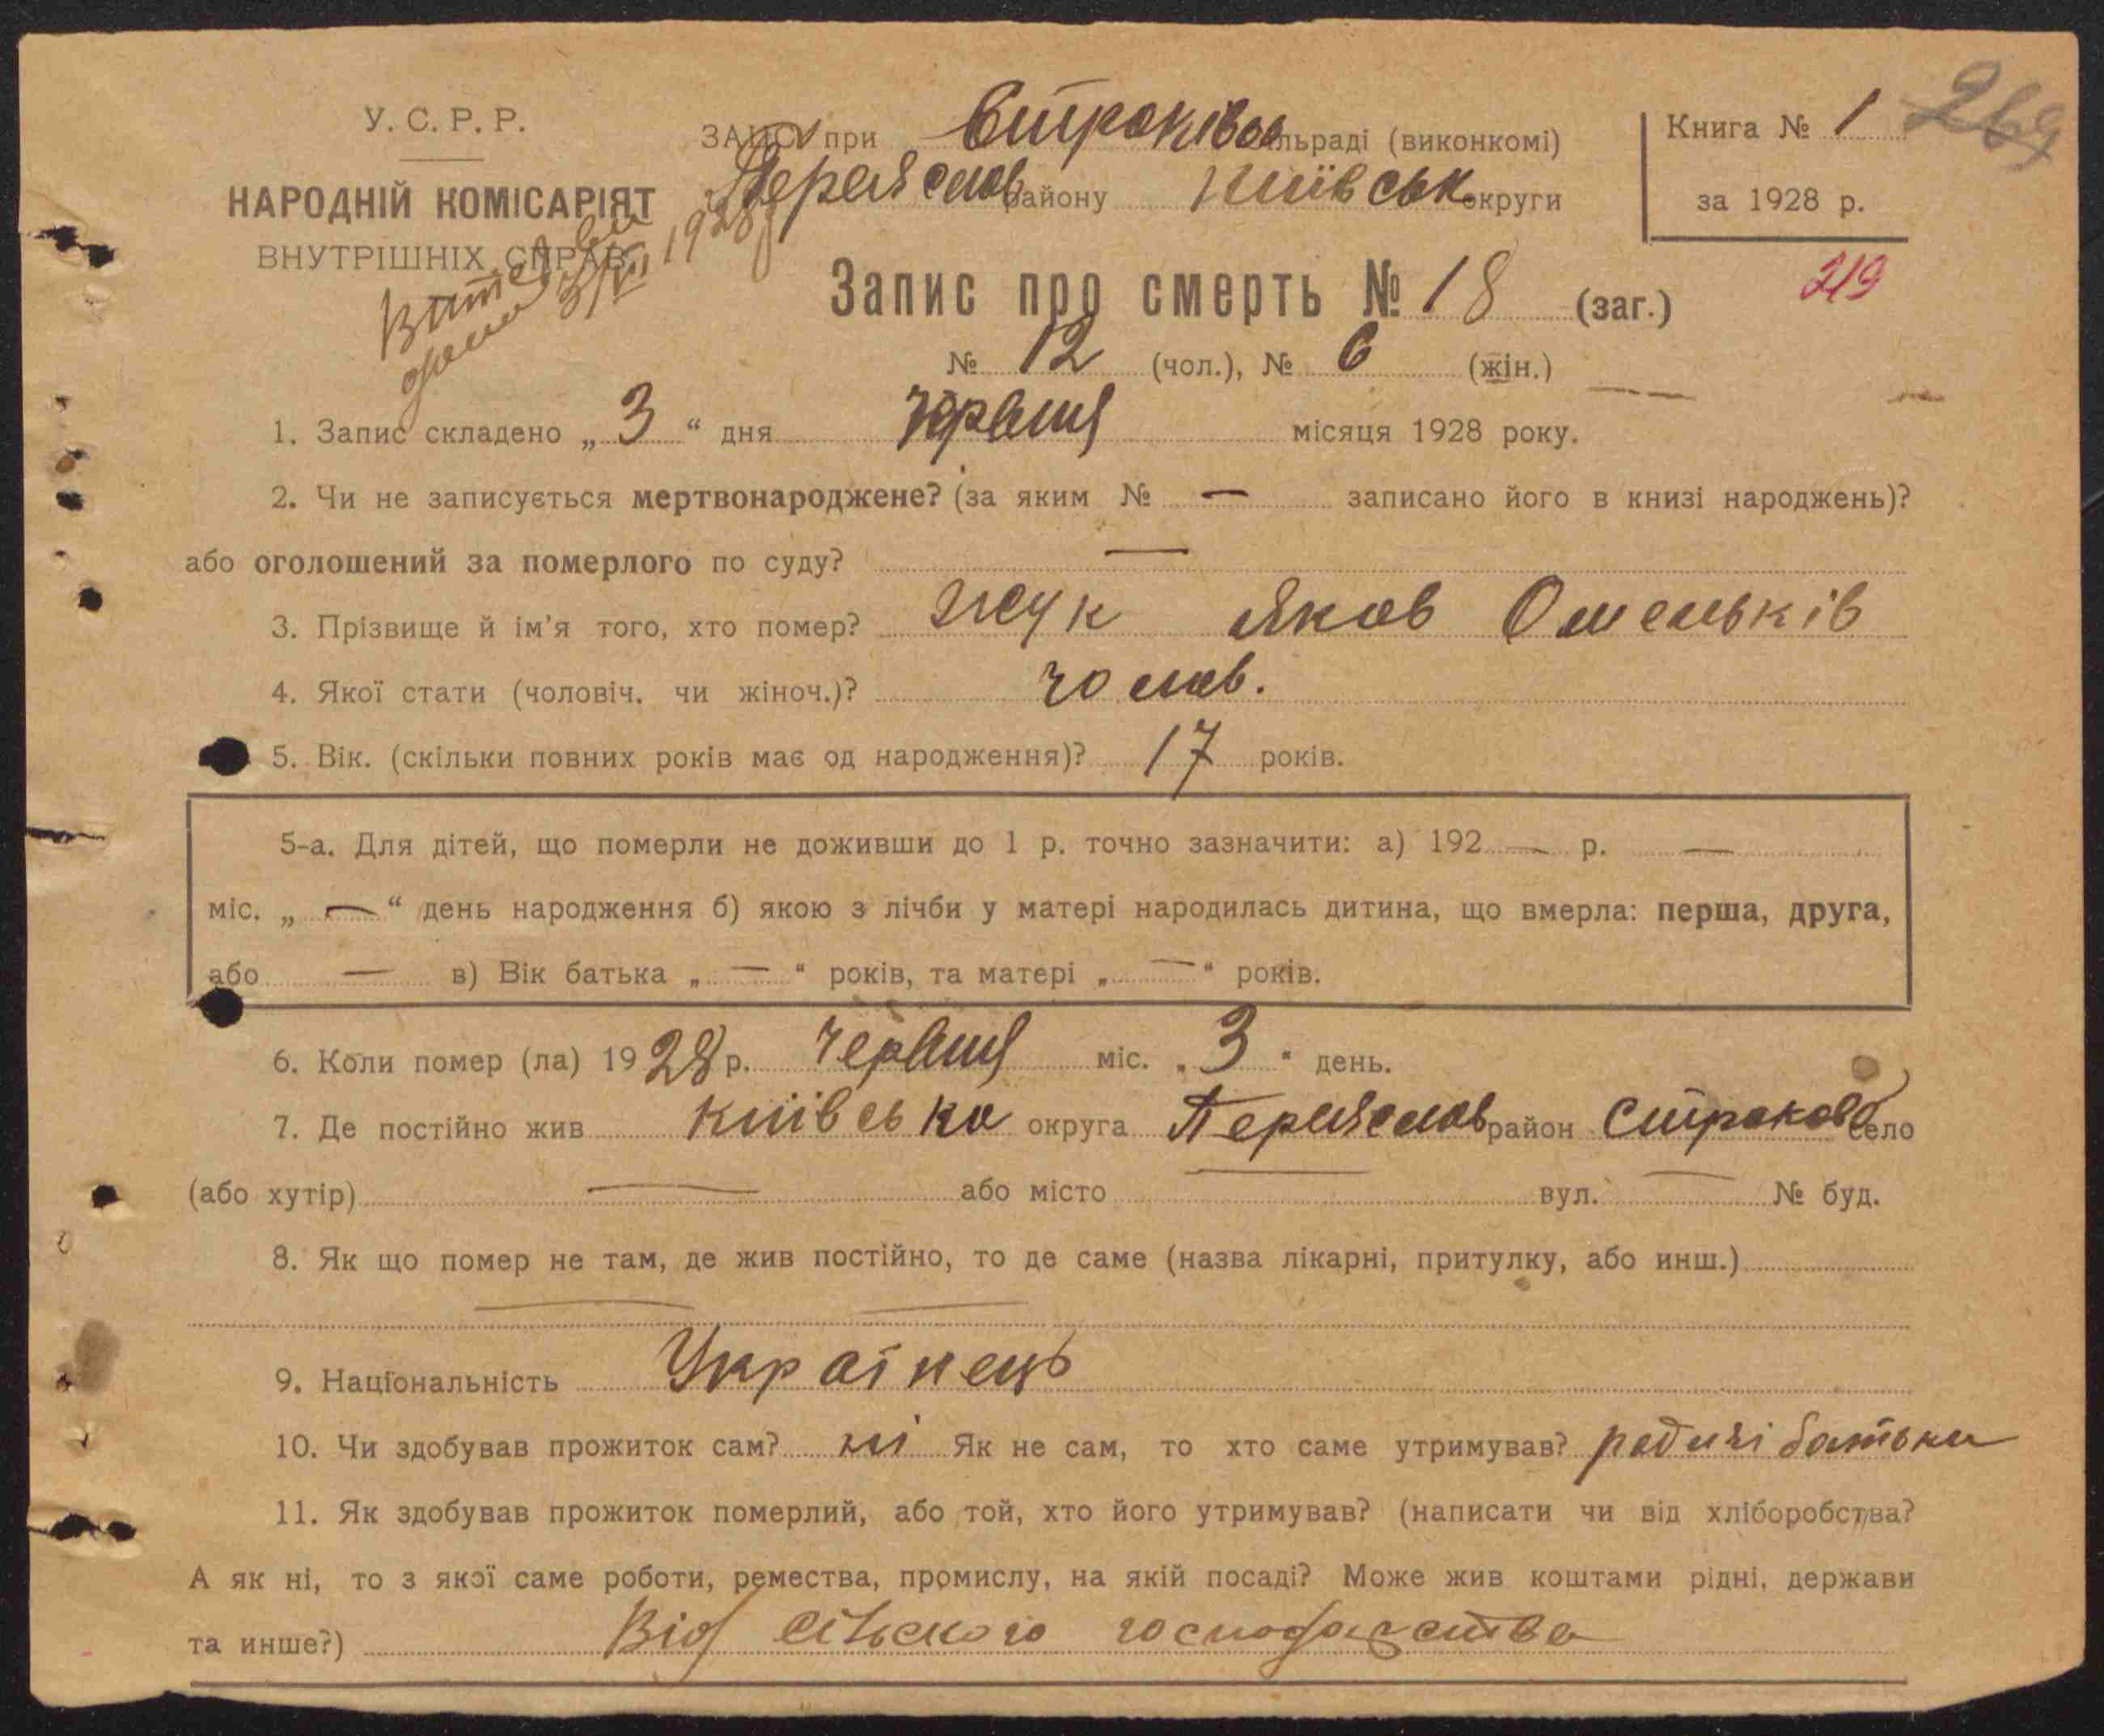 У. С. Р. Р.
НАРОДНІЙ КОМІСАРІЯТ
ВНУТРІШНІХ СПРАВ
ЗАПИС при Строків сільраді (виконкомі)
Переяслов району Київськ округи
Книга № 1
за 1928 р.
269
219
Витяг
3/VI 1928 р
Запис про смерть № 18 (заг.)
№ 12 (чол.), № 6 (жін.)
1. Запис складено „ 3 “ дня червня місяця 1928 року.
2. Чи не записується мертвонароджене? (за яким № — записано його в книзі народжень)?
або оголошений за померлого по суду? —
3. Прізвище й ім'я того, хто помер? Жук Яков Омельків
4. Якої стати (чоловіч. чи жіноч.)? чолов.
5. Вік. (скільки повних років має од народження)? 17 років.
5-а. Для дітей, що померли не доживши до 1 р. точно зазначити: а) 192 — р. —
міс. „ — “ день народження б) якою з лічби у матері народилась дитина, що вмерла: перша, друга,
або — в) Вік батька „ — “ років, та матері „ — “ років.
6. Коли помер (ла) 1928 р. червня міс. „ 3 “ день.
7. Де постійно жив Київська округа Переяслов район Строкова село
(або хутір) — або місто — вул. — № буд.
8. Як що помер не там, де жив постійно, то де саме (назва лікарні, притулку, або инш.)
— —
9. Національність Українець
10. Чи здобував прожиток сам? ні Як не сам, то хто саме утримував? родичі батьки
11. Як здобував прожиток померлий, або той, хто його утримував? (написати чи від хліборобства?
А як ні, то з якої саме роботи, ремества, промислу, на якій посаді? Може жив коштами рідні, держави
та инше?) Від сільского господарства